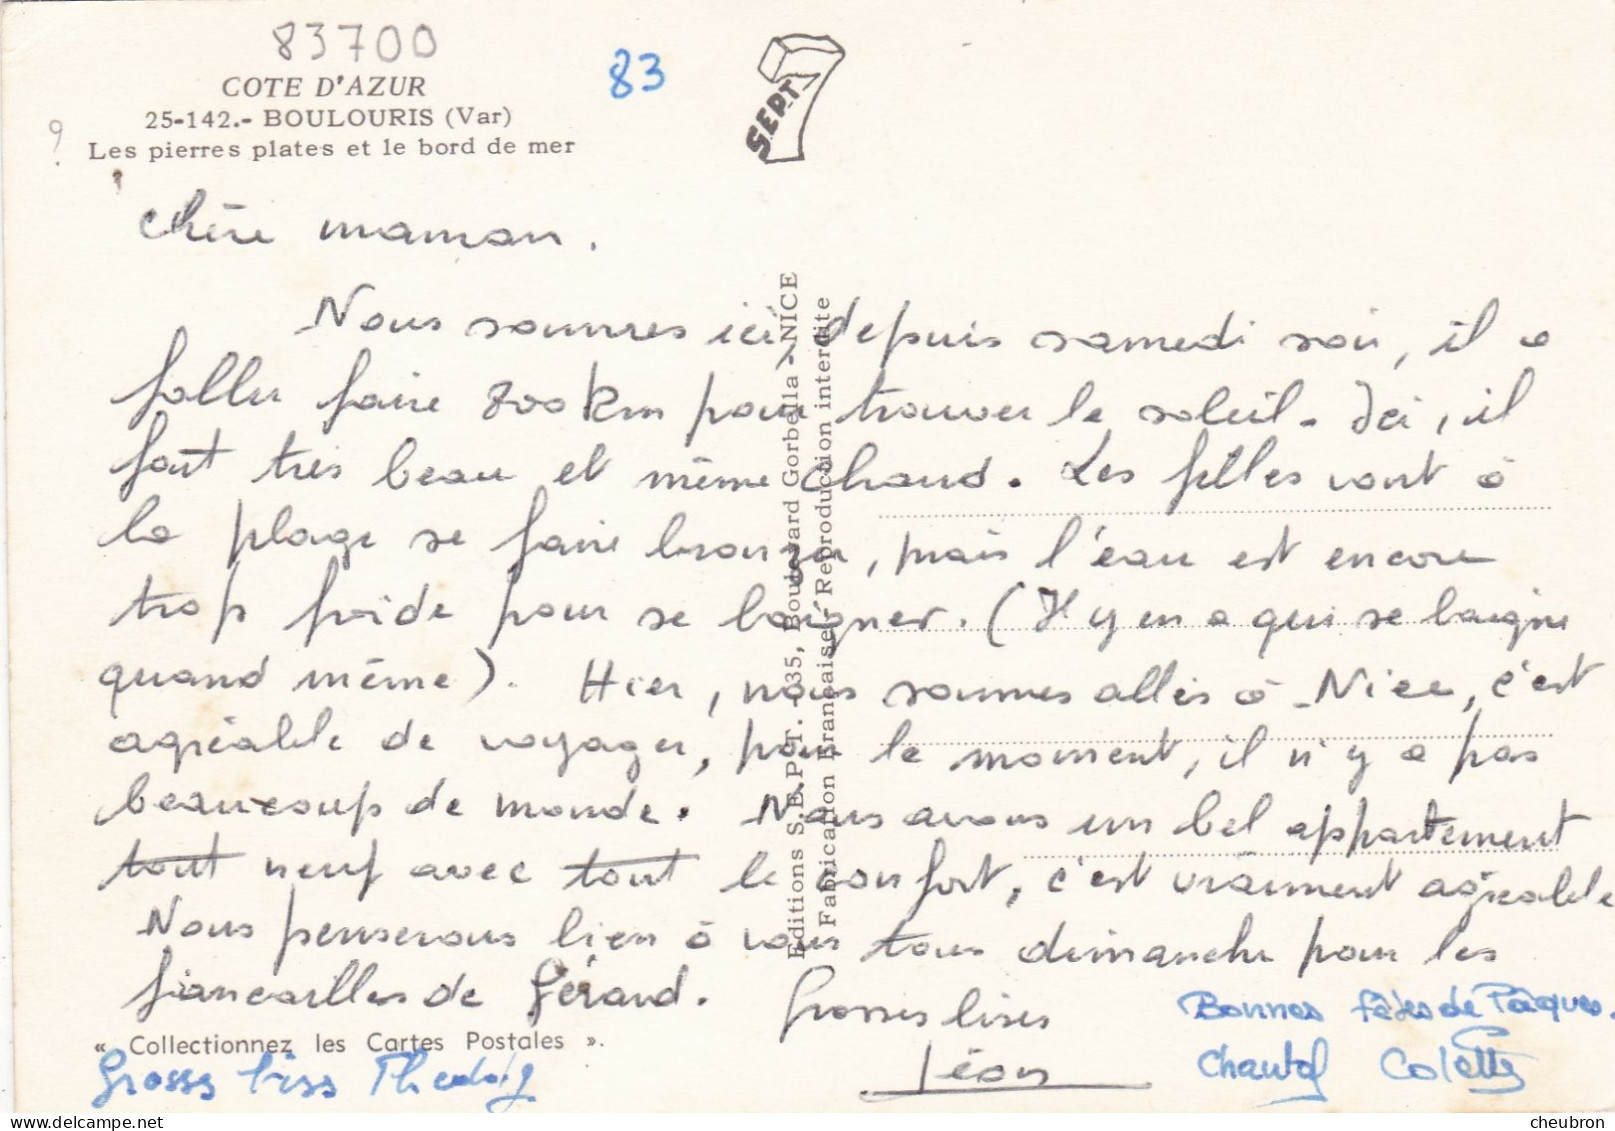 83700
COTE D'AZUR
25-142.- BOULOURIS (Var)
Les pierres plates et le bord de mer
83
S.E.P.T.
Chère maman.
Nous sommes ici, depuis samedi soir, il a
fallu faire 800 km pour trouver le soleil. Ici, il
fait très beau et même chaud. Les filles vont à
la plage se faire bronzer, mais l'eau est encore
trop froide pour se baigner. (Il y en a qui se baigne
quand même). Hier, nous sommes allés à Nice, c'est
agréable de voyager, pour le moment, il n'y a pas
beaucoup de monde. Nous avons un bel appartement
tout neuf avec tout le confort, c'est vraiment agréable
Nous penserons bien à vous tous dimanche pour les
fiancailles de Gérard.
Grosses bises
Léon
Bonnes fêtes de Pâques.
Chantal Colette
« Collectionnez les Cartes Postales ».
Grosses bises
Editions S.E.P.T. - 35, Boulevard Gorbella - NICE
Fabrication Française - Reproduction interdite
cheubron.com